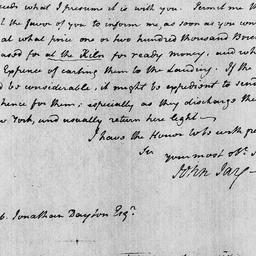 needs what I presume it is with you. Permit me th
l the favor of you to inform me as soon as you conv
at what price one or two hundred thousand Bric
ased for at the Kiln for ready money, and wh
Expence of carting them to the Landing. If the
d be considerable, it might be expedient to send
hence for them; especially as they discharge the
ew York, and usually return here light—
I have the Honor to be with gre
Sir your most ob. S
John Jay—
Jonathan Dayton Esqr.